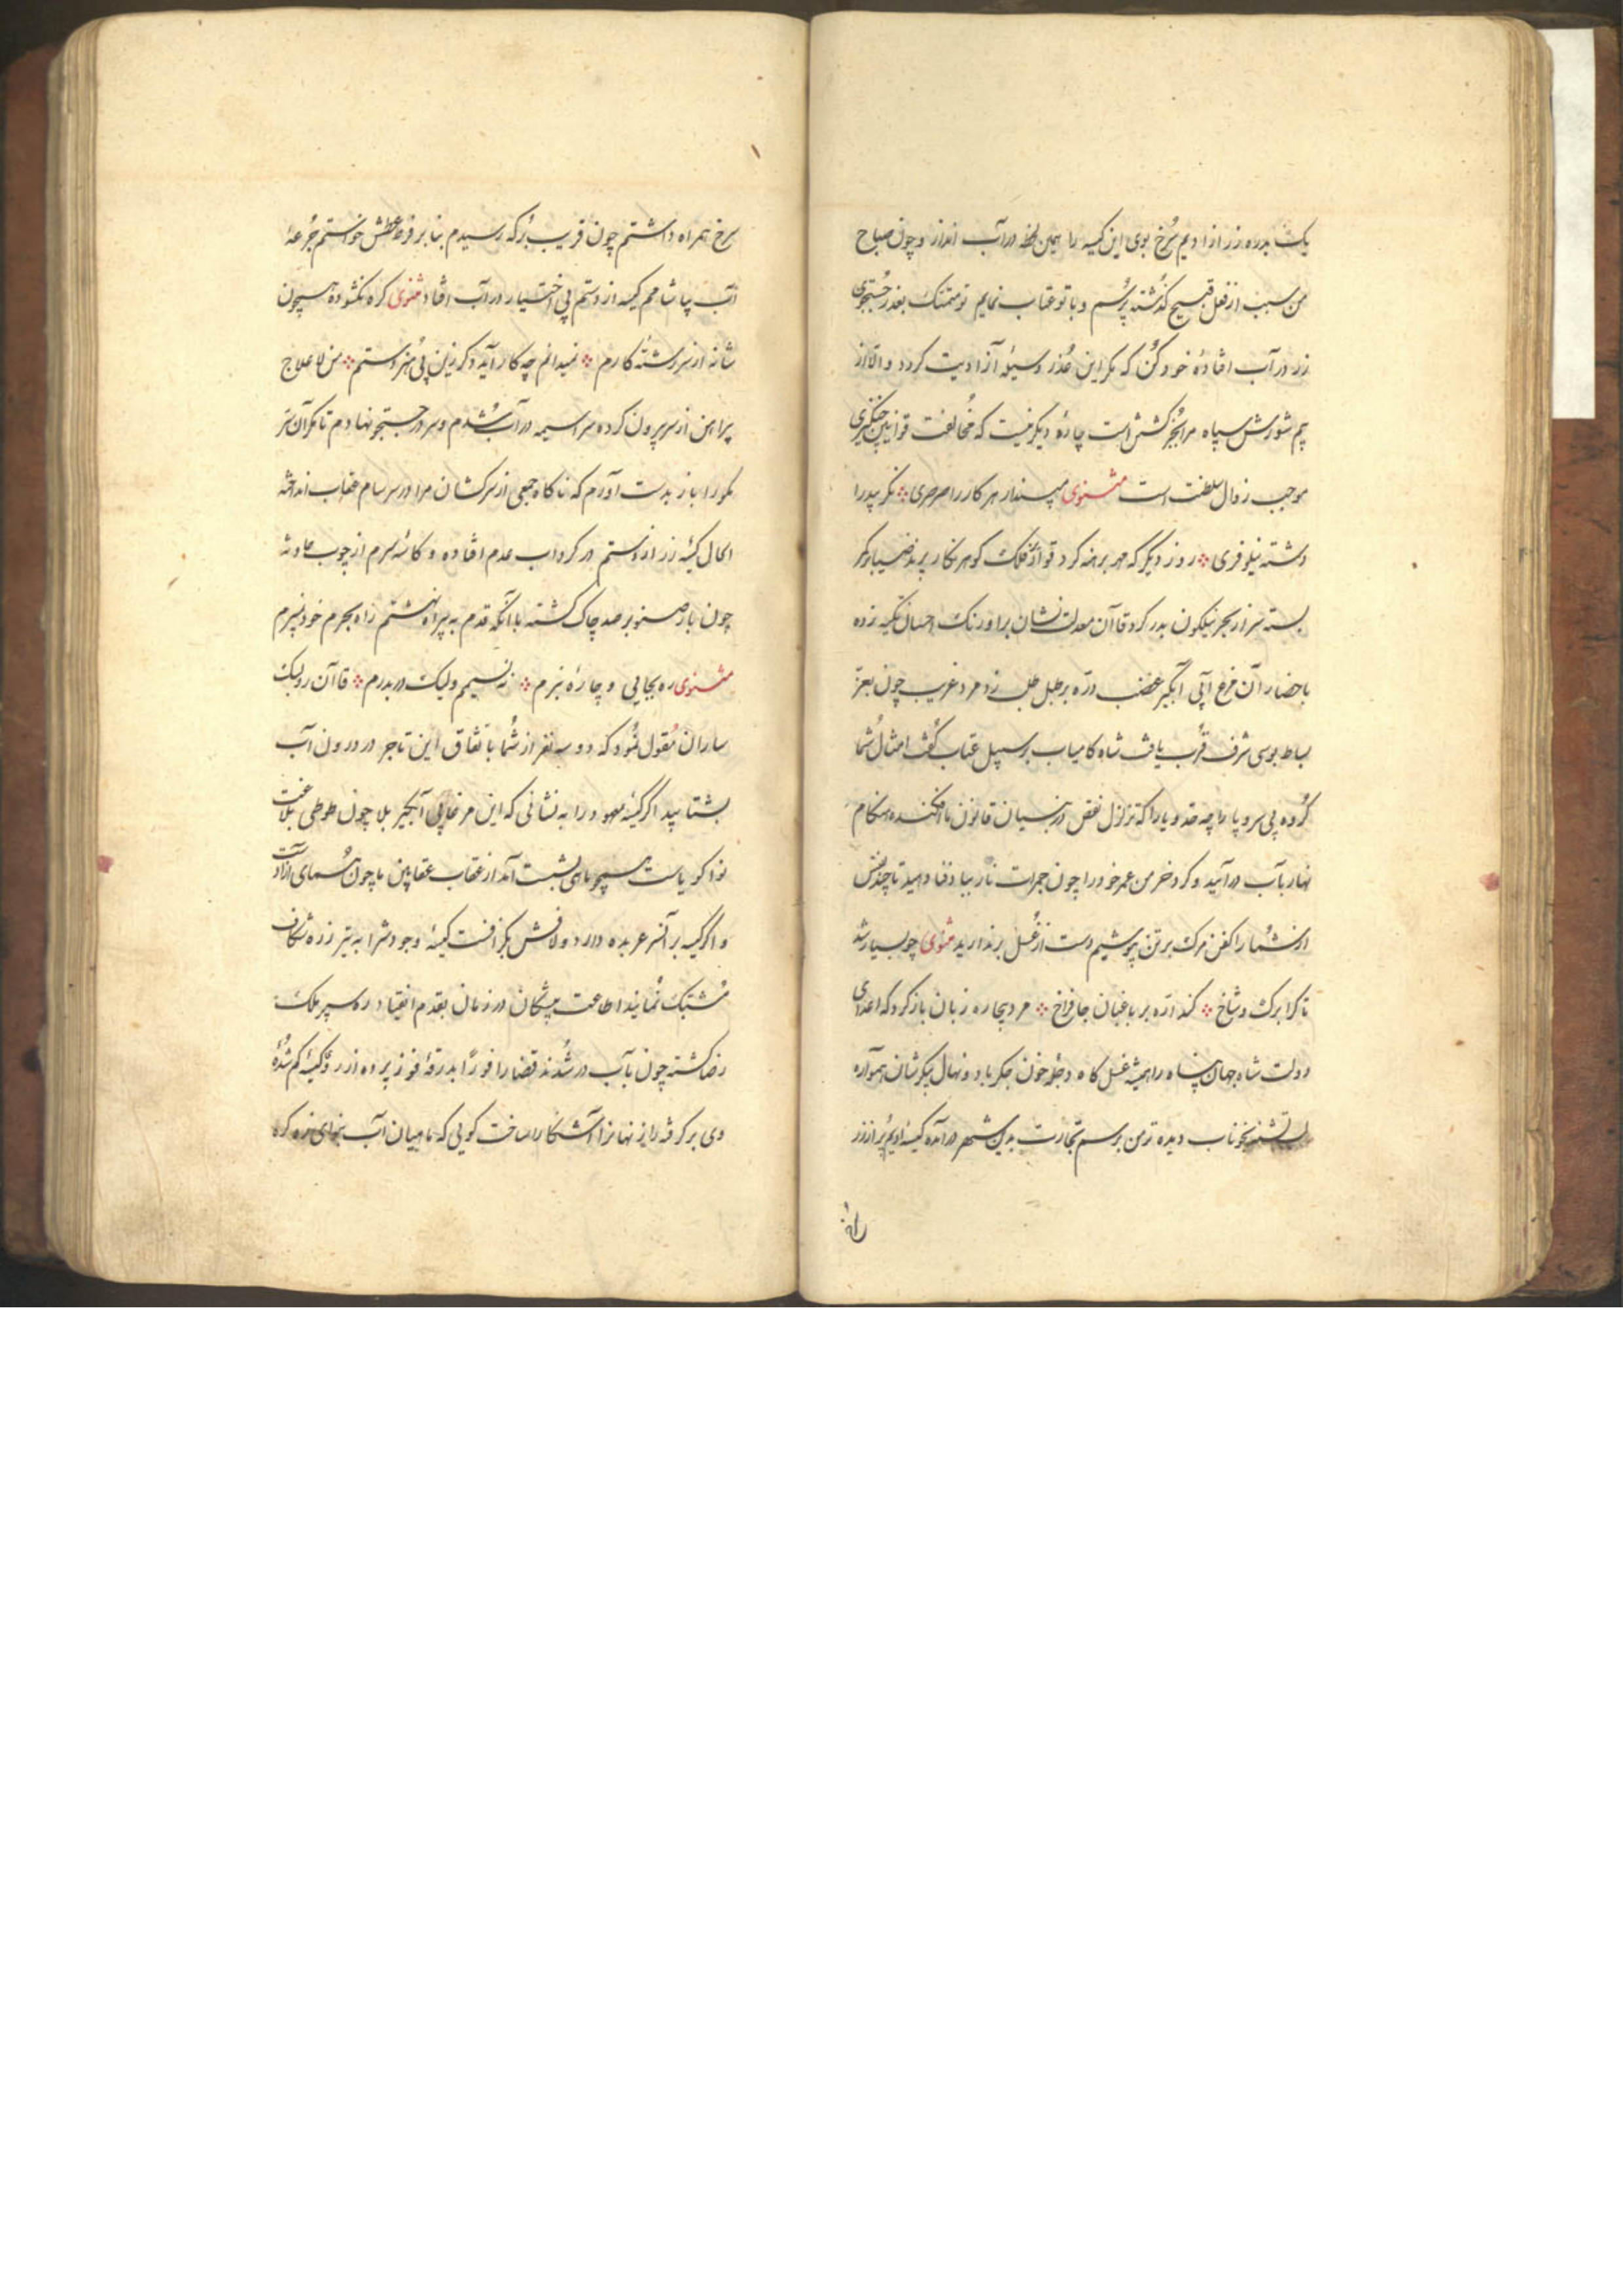 یک بدره زر از ادیم سرخ بوی این کیسه را همین لحظه در آب انداز و چون صباح
من سبب از فعل قبیح گذشته پرسم و با تو عتاب نمایم تو متمسک بعذر جستجوی
زر در آب افتادهٔ خود کن که مگر این عذر وسیلهٔ آزادیت گردد و الا از
بیم شورش سپاه مرا بجز کشتن است چارهٔ دیگر نیست که مخالفت قوانین چنگیزی
موجب زوال سلطنت است مثنوی مپندار هر کار را سرسری نگر بیدرا
دشته نیلوفری روز دیگر که مهر برهنه کرد فلک گوهرنگار پرند ضیا بر کمر
بسته سر از بحر نیلگون بدر کرد قاآن معدلت نشان بر اورنگ احسان تکیه زده
باحضار آن مرغ آبی آبگیر غضب دره بر طبل طلب زد مرد غریب چون بعز
بساط بوسی شرف قرب یافت شاه کامیاب بر سبیل عتاب گفت امثال شما
گروه بی سر و پا را چه حد و یارا که تزلزل نقض در بنیان قانون ما افکنده هنگام
نهار بآب در آیید و خرمن عمر خود را چون جمرات نار بباد فنا دهید تا چند تن
از شما را کفن مرگ بر تن پوشیم دست از غسل برندارید مثنوی چو بسیار شد
تاک را برگ و شاخ کند اره بر باغبان جا فراخ مرد بیچاره زبان باز کرد که اعدای
دولت شاه جهان پناه را همیشه غسل گاه دجلهٔ خون جگر باد و نهال پیکرشان همواره
لب تشنه بخوناب دیده تر من برسم تجارت بدین شهر در آمده کیسهٔ ادیم پر از زر
سرخ همراه داشتم چون قریب برکه رسیدم بنابر فرط عطش خواستم جرعهٔ
آب بیاشامم کیسه از دستم بی اختیار در آب افتاد مثنوی گره نگشوده همچون
شانه از سررشتهٔ کارم نمیدانم چه کار آید دگر زین بی هنر دستم من لاعلاج
پیراهن از سر بیرون کرده سراسیمه در آب شدم و سر در جستجو نهادم تا مگر آن
را باز بدست آورم که ناگاه جمعی از سرکشان مرا در سرسام عقاب انداخته
الحال کیسهٔ زر از دستم در گرداب عدم افتاده و کاسهٔ سرم از چوب حادثه
چون بار صنوبر صد چاک گشته با آنکه قدم به بیراه نهشتم راه بجرم خود نبرم
مثنوی ره بجایی و چاره نبرم نه نسیم ولیک در بدرم قاآن رو بیک
ساران مقول نمود که دو سه نفر از شما باتفاق این تاجر در درون آب
بشتابید اگر کیسهٔ معهود را به نشانی که این مرغابی آبگیر بلا چون طوطی بلاغت
نوا گویاست همچو ماهی بشست آمد از عقاب عقابین ما چون همای آزاد است
و اگر کیسه بر آنسر عربده دارد و لافش بگزافست کیسهٔ وجودش را به تیر زره شکاف
مشبک نمایند اطاعت پیشگان در زمان بقدم انقیاد ره سپر ملک
رضا گشته چون بآب در شدند قضا را فوراً بدرقهٔ فوز پرده از روی کیسهٔ گم شدهٔ
وی برگرفته راز نهانرا آشکارا ساخت گویی که ماهیان آب بنوای زه کره